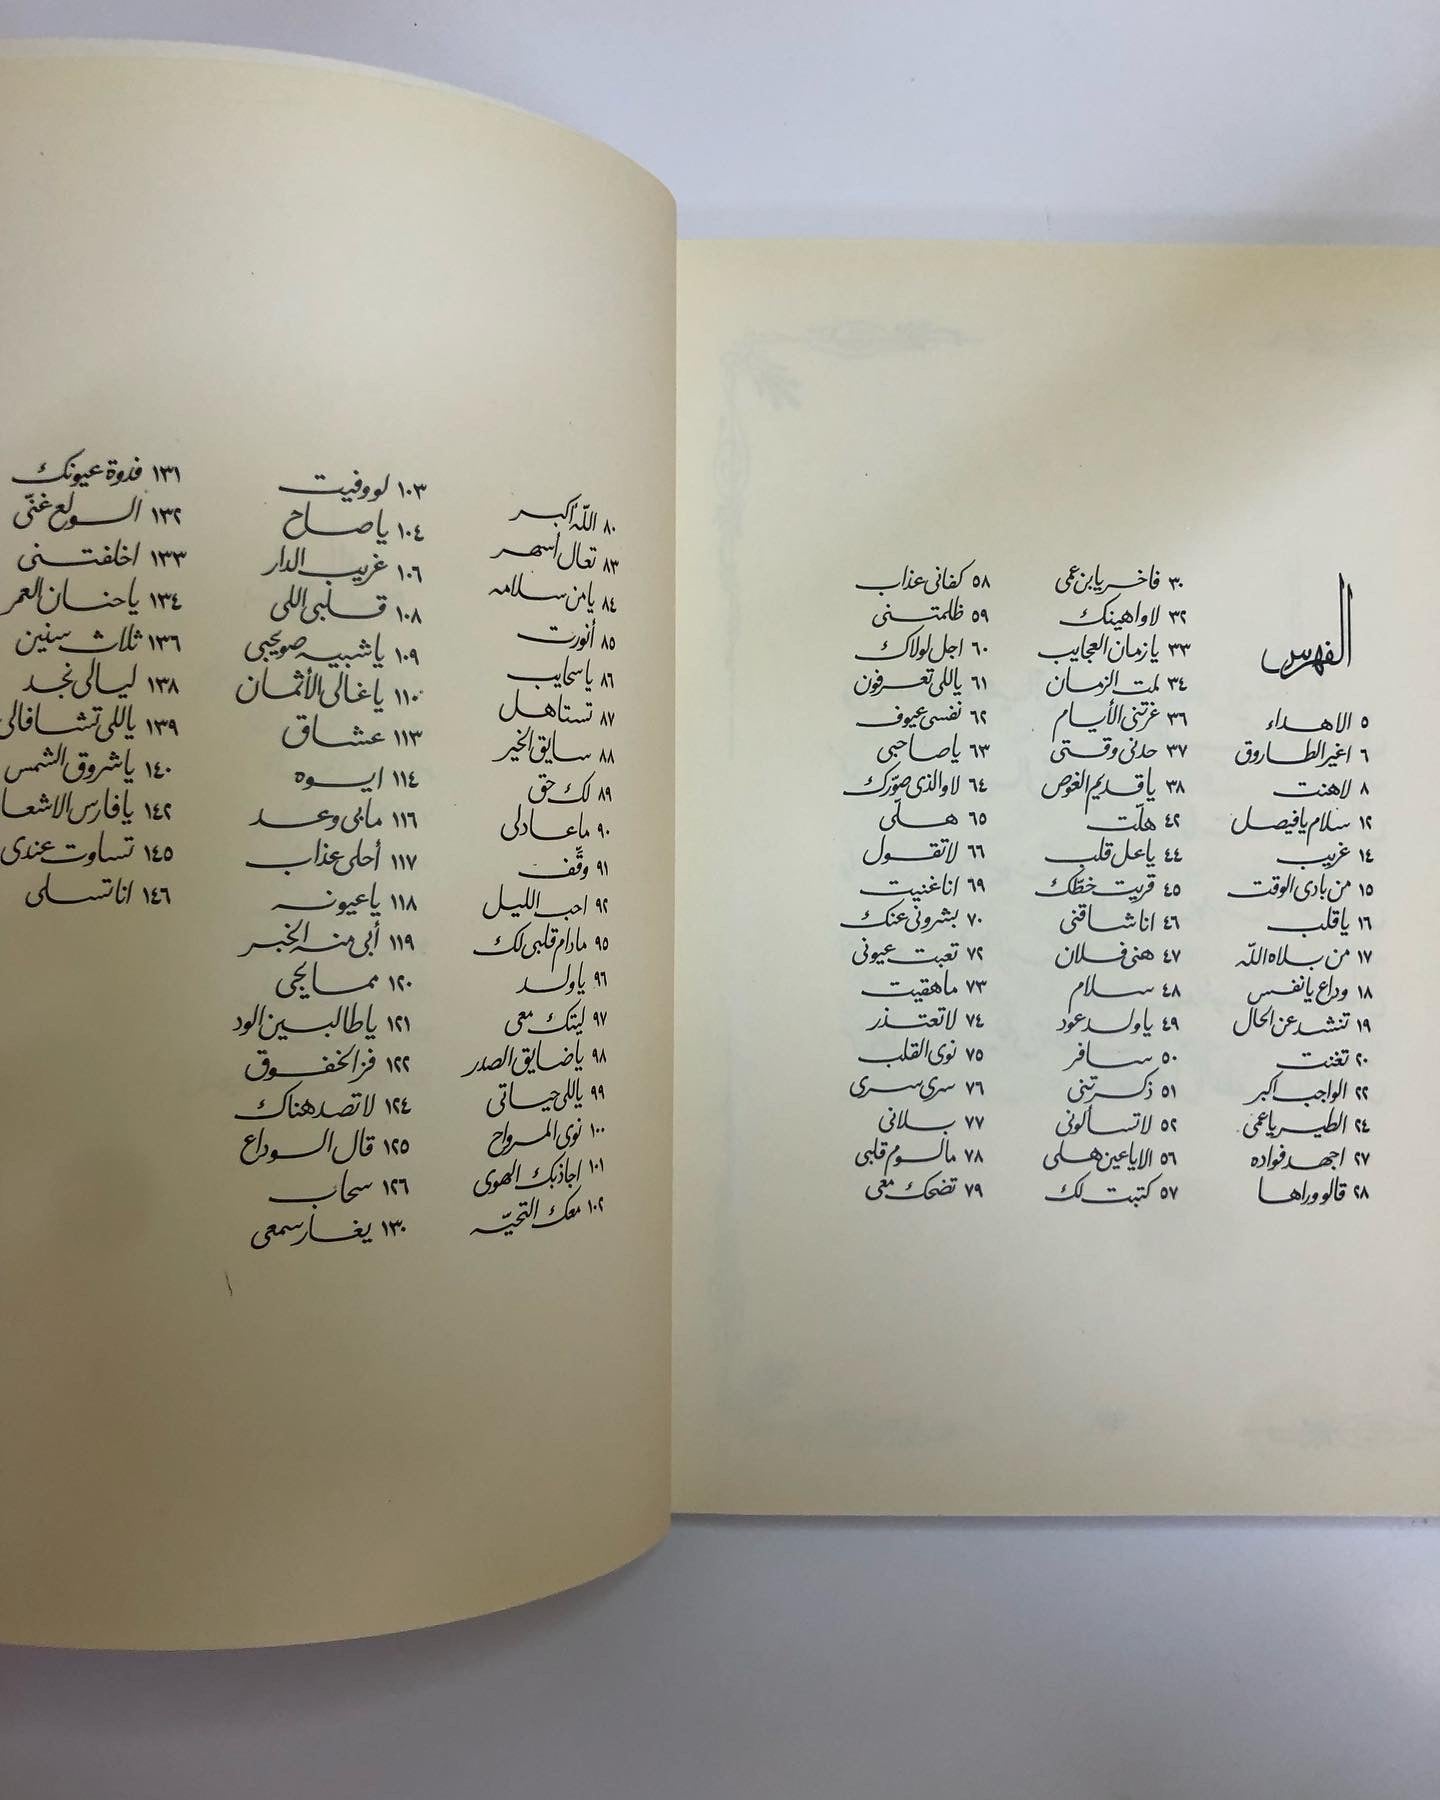 الفهرس
٥ الاهداء
٦ اغير الطاروق
٨ لاهنت
١٢ سلام يا فيصل
١٤ غريب
١٥ من بادى الوقت
١٦ يا قلب
١٧ من بلاه الله
١٨ وداع يا نفس
١٩ تنشد عن الحال
٢٠ تغنت
٢٢ الواجب اكبر
٢٤ الطير يا عمى
٢٧ اجهد فواده
٢٨ قالو وراها
٣٠ فاخر يا بن عمى
٣٢ لا واهينك
٣٣ يا زمان العجايب
٣٤ لمت الزمان
٣٦ غرتنى الأيام
٣٧ حدنى وقتى
٣٨ يا قديم الغوص
٤٢ هلّت
٤٤ يا عل قلب
٤٥ قريت خطّك
٤٦ انا شاقنى
٤٧ هنى فلان
٤٨ سلام
٤٩ يا ولد عود
٥٠ سافر
٥١ ذكرتنى
٥٢ لا تسألونى
٥٦ الا يا عين هلى
٥٧ كتبت لك
٥٨ كفانى عذاب
٥٩ ظلمتنى
٦٠ اجل لولاك
٦١ يا للى تعرفون
٦٢ نفسى عيوف
٦٣ يا صاحبى
٦٤ لا والذى صوّرك
٦٥ هلّى
٦٦ لا تقول
٦٩ انا غنيت
٧٠ بشرونى عنك
٧٢ تعبت عيونى
٧٣ ما هقيت
٧٤ لا تعتذر
٧٥ نوى القلب
٧٦ سرى سرى
٧٧ بلانى
٧٨ ما لوم قلبى
٧٩ تضحك معى
٨٠ الله أكبر
٨٣ تعال أسهر
٨٤ يا من سلامه
٨٥ أنورت
٨٦ يا سحايب
٨٧ تستاهل
٨٨ سايق الخير
٨٩ لك حق
٩٠ ما عاد لى
٩١ وقّف
٩٢ احب الليل
٩٥ مادام قلبى لك
٩٦ يا ولد
٩٧ ليتك معى
٩٨ يا ضايق الصدر
٩٩ يا للى حياتى
١٠٠ نوى المرواح
١٠١ اجاذبك الهوى
١٠٢ معك التحيّه
١٠٣ لو وفيت
١٠٤ يا صاح
١٠٦ غريب الدار
١٠٨ قلبى اللى
١٠٩ يا شبيه صويحبى
١١٠ يا غالى الأثمان
١١٣ عشاق
١١٤ ايوه
١١٦ مابى وعد
١١٧ أحلى عذاب
١١٨ يا عيونه
١١٩ أبى منه الخبر
١٢٠ مما يجى
١٢١ يا طالبين الود
١٢٢ فز الخفوق
١٢٤ لا تصد هناك
١٢٥ قال الوداع
١٢٦ سحاب
١٣٠ يغار سمعى
١٣١ فدوة عيونك
١٣٢ السولع غنّى
١٣٣ اخلفتنى
١٣٤ يا حنان العمر
١٣٦ ثلاث سنين
١٣٨ ليالى نجد
١٣٩ يا للى تشافالى
١٤٠ يا شروق الشمس
١٤٢ يا فارس الاشعا
١٤٥ تساوت عندى
١٤٦ انا تسلى